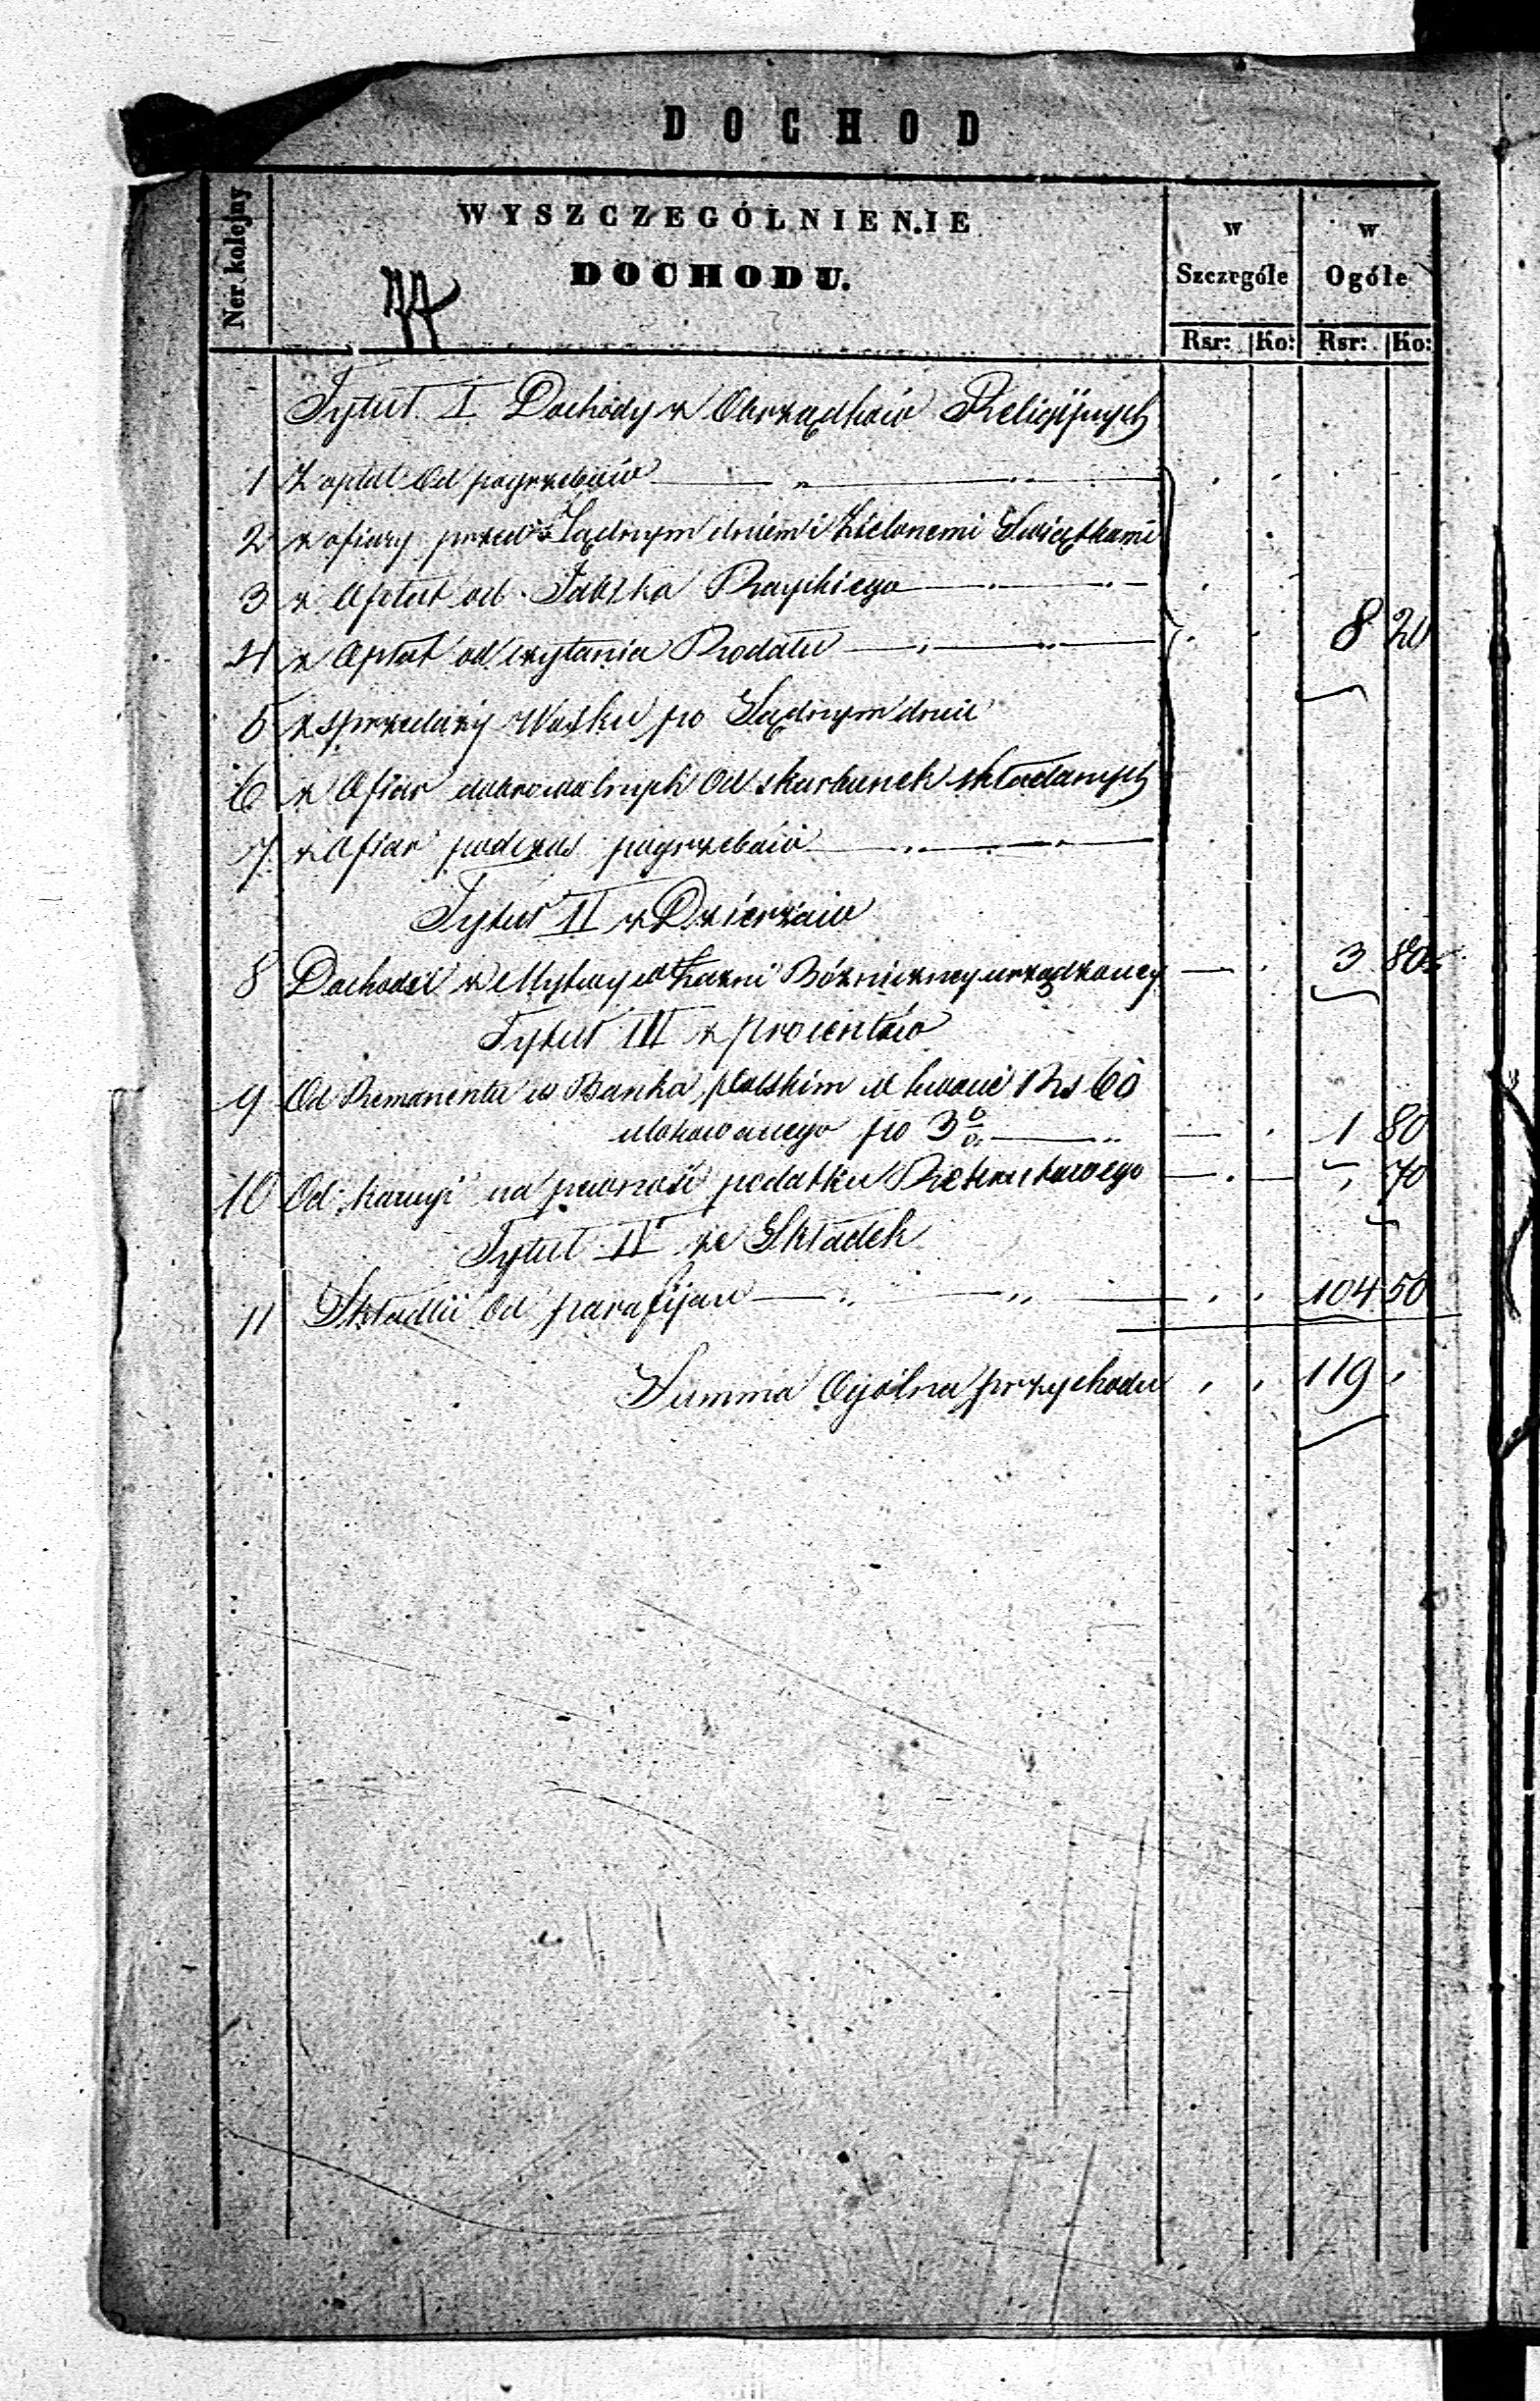 DOCHOD
Ner. kolejny
WYSZCZEGÓLNIENIE
DOCHODU.
w Szczególe
w Ogóle
Rsr: Ko: Rsr: Ko:
Tytuł I Dochody z Obrządków Religijnych
1 Z opłat Od pogrzebów
2 z ofiary przed Sądnym dniem i Zielonemi Swiątkami
3 z Opłat od Jabłka Rayskiego
4 z Opłat od czytania Rodału 8 20
5 z sprzedaży Wosku po Sądnym dniu
6 z Ofiar dobrowolnych Od skarbunek składanych
7 z Ofiar podczas pogrzebów
Tytuł II z Dzierżaw
8 Dochodu z Mykwy w Łazni Bóżniczney urządzoney 3 80
Tytuł III z procentów
9 Od Remanentu w Banku polskim w kwocie Rs 60
ulokowanego po 3 % 1 80
10 Od kaucyi na pewność podatku Rekrutowego „ 70
Tytuł IV ze Składek
11 Składki Od parafijan 104 50
Summa Ogólna przychodu 119 „